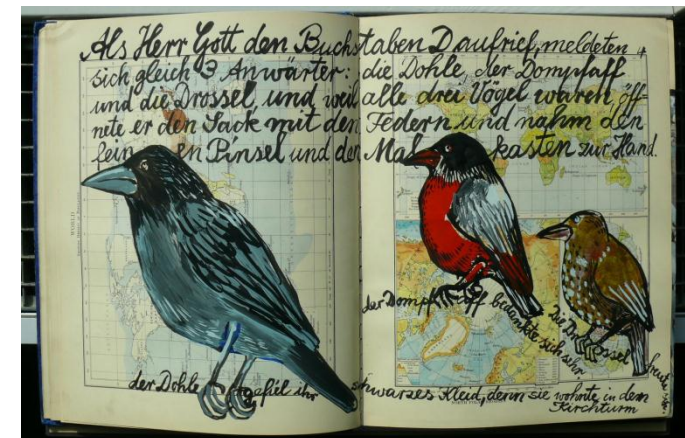 Als Herr Gott den Buchstaben D aufrief, meldeten
sich gleich 3 Anwärter: die Dohle, der Dompfaff
und die Drossel, und weil alle drei Vögel waren, öff-
nete er den Sack mit den Federn und nahm den
feinen Pinsel und den Malkasten zur Hand.
der Dompfaff bedankte sich sehr
Die Drossel freute sich
der Dohle gefiel ihr schwarzes Kleid, denn sie wohnte in dem
Kirchturm
WORLD